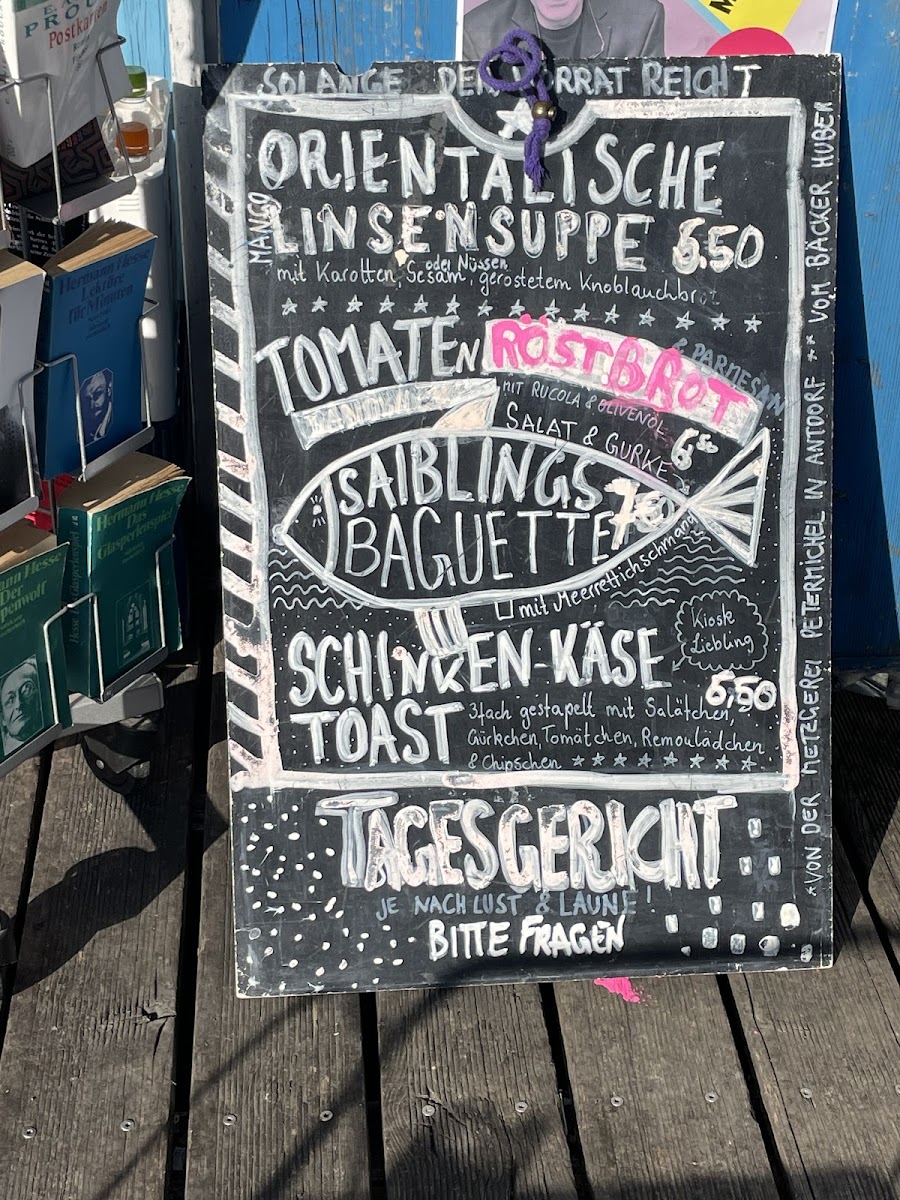 Postkarten
Hermann Hesse
Lektüre
für Minuten
Hermann Hesse
Das
Glasperlenspiel
SOLANGE DER VORRAT REICHT
ORIENTALISCHE
MANGO
LINSENSUPPE 6.50
oder Nüssen
mit Karotten, Sesam, geröstetem Knoblauchbrot
TOMATEN RÖSTBROT
& PARMESAN
MIT RUCOLA & OLIVENÖL
6,50
SALAT & GURKE
SAIBLINGS
BAGUETTE
mit Meerrettichschmand
Kiosk
Liebling
SCHINKEN-KÄSE
TOAST
6,50
3fach gestapelt mit Salätchen,
Gürkchen, Tomätchen, Remoulädchen
& Chipschen
TAGESGERICHT
JE NACH LUST & LAUNE!
BITTE FRAGEN
*VON DER METZGEREI PETERMICHEL IN ANTDORF ** VOM BÄCKER HUBER